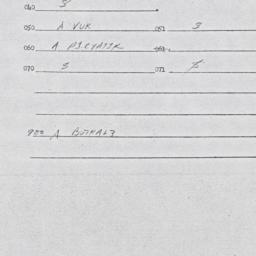 040 3
050 A VUK 051 3
060 A PICYATIK 061
070 5 071
900 A BOTKALZ